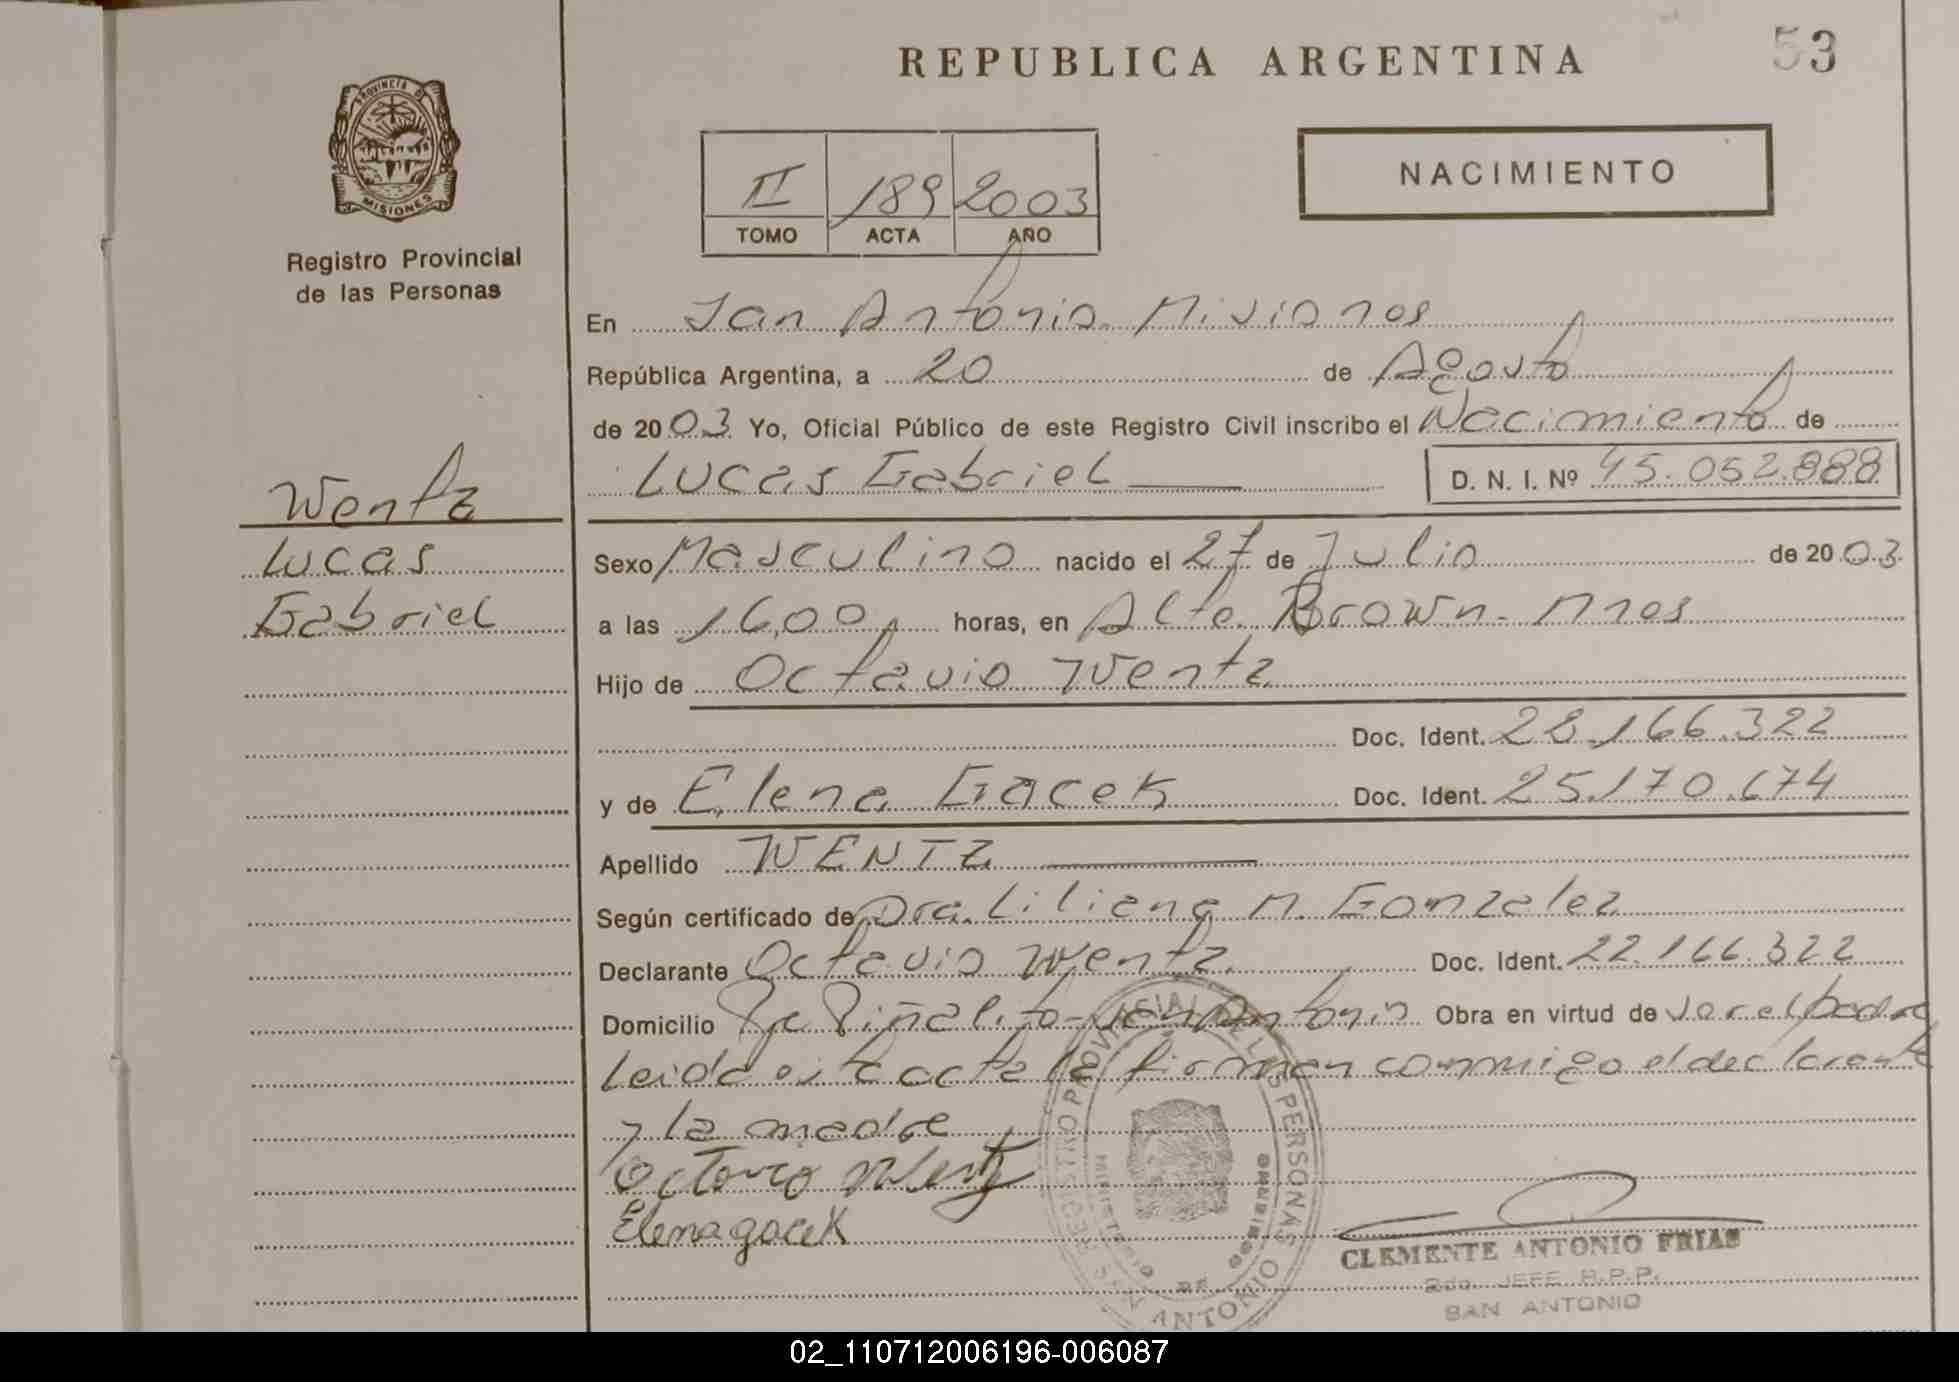 REPUBLICA ARGENTINA
53
PROVINCIA DE
MISIONES
Registro Provincial
de las Personas
II 189 2003
TOMO ACTA AÑO
NACIMIENTO
En San Antonio. Misiones
República Argentina, a 20 de Agosto
de 2003 Yo, Oficial Público de este Registro Civil inscribo el Nacimiento de
Lucas Gabriel D. N. I. Nº 45.052.888
Wentz
Lucas
Gabriel
Sexo Masculino nacido el 27 de Julio de 2003
a las 16,00 horas, en Alte. Brown - Mnes
Hijo de Octavio Wentz
Doc. Ident. 28.166.322
y de Elena Gacek Doc. Ident. 25.170.674
Apellido WENTZ
Según certificado de Dra. Liliana M. Gonzalez
Declarante Octavio Wentz Doc. Ident. 22.166.322
Domicilio Piñalito - San Antonio Obra en virtud de ser el padre
Leida esta acta la firman conmigo el declarante
y la madre
Octavio Wentz
Elena gacek
REGISTRO PROVINCIAL DE LAS PERSONAS
MINISTERIO DE GOBIERNO
SAN ANTONIO
CLEMENTE ANTONIO FRIAS
2do. JEFE R.P.P.
SAN ANTONIO
02_110712006196-006087